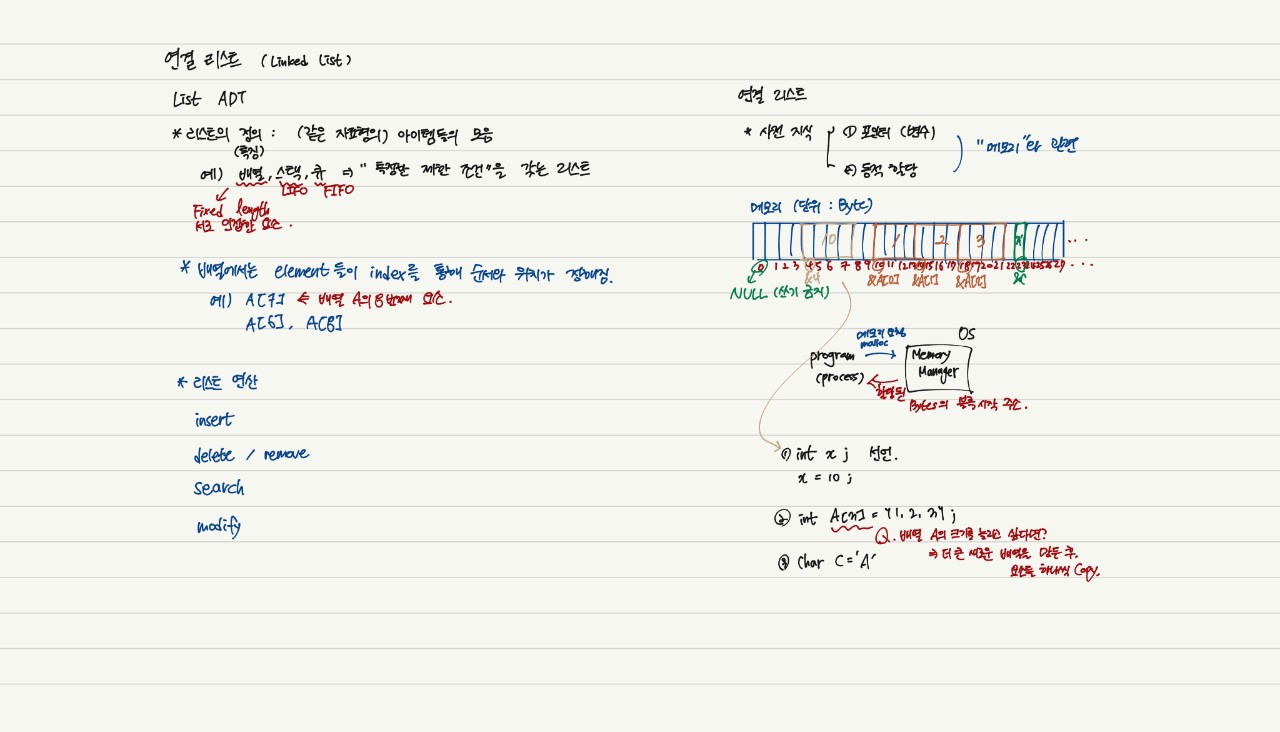 연결 리스트 (Linked List)
List ADT
* 리스트의 정의 : (같은 자료형의) 아이템들의 모음
(특징)
예) 배열, 스택, 큐 ⇒ "특정한 제한 조건"을 갖는 리스트
LIFO FIFO
Fixed length
서로 인접한 요소.
* 배열에서는 element들이 index를 통해 순서와 위치가 정해짐.
예) A[7] ⇐ 배열 A의 8번째 요소.
A[6], A[8]
* 리스트 연산
insert
delete / remove
search
modify
연결 리스트
* 사전 지식
① 포인터 (변수)
② 동적 할당
"메모리"와 관련
메모리 (단위 : Byte)
10 1 2 3
0 1 2 3 4 5 6 7 8 9 10 11 12 13 14 15 16 17 18 19 20 21 22 23 24 25 26 27 ...
&x &A[0] &A[1] &A[2] &c
NULL (쓰기 금지)
메모리 요청
malloc
OS
program
(process)
Memory
Manager
할당된
Bytes의 블록 시작 주소.
① int x ; 선언.
x = 10 ;
② int A[3] = {1, 2, 3} ;
Q. 배열 A의 크기를 늘리고 싶다면?
⇒ 더 큰 새로운 배열을 만든 후,
요소들 하나씩 Copy.
③ char C = 'A'